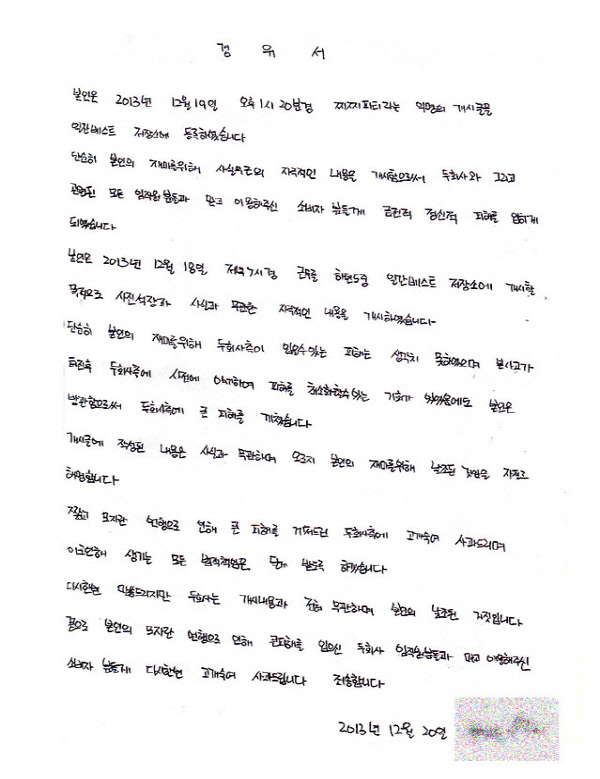 경 위 서
본인은 2013년 12월 19일 오후 1시 20분경 찌찌피티라는 익명의 게시글을
일간베스트 저장소에 등록하였습니다
단순히 본인의 재미를위해 사실무근의 자극적인 내용을 게시함으로써 두회사와 그리고
관련된 모든 임직원분들과 믿고 이용하주신 소비자 분들게 금전적 정신적 피해를 입히게
되었습니다
본인은 2013년 12월 18일 저녁 7시경 근무를 하던도중 일간베스트 저장소에 게시할
목적으로 사진 석장과 사실과 무관한 자극적인 내용을 게시하였습니다
단순히 본인의 재미를위해 두회사측이 입을수있는 피해는 생각치 못하였으며 본사고가
터진후 두회사측에 사전에 이야기하여 피해를 최소화할수있는 기회가 있었음에도 본인은
방관함으로써 두회사측에 큰 피해를 끼쳤습니다
게시글에 작성된 내용은 사실과 무관하며 오로지 본인의 재미를위해 날조된 것임을 자필로
해명합니다
짧고 모자란 언행으로 인해 큰 피해를 끼쳐드린 두회사측에 고개숙여 사과드리며
이로인해 생기는 모든 법적책임은 달게 받도록 하겠습니다
다시한번 말씀드리지만 두회사는 게시내용과 전혀 무관하며 본인의 날조된 거짓입니다
끝으로 본인의 모자란 언행으로 인해 큰피해를 입으신 두회사 임직원분들과 믿고 이용해주신
소비자 분들게 다시한번 고개숙여 사과드립니다 죄송합니다
2013년 12월 20일